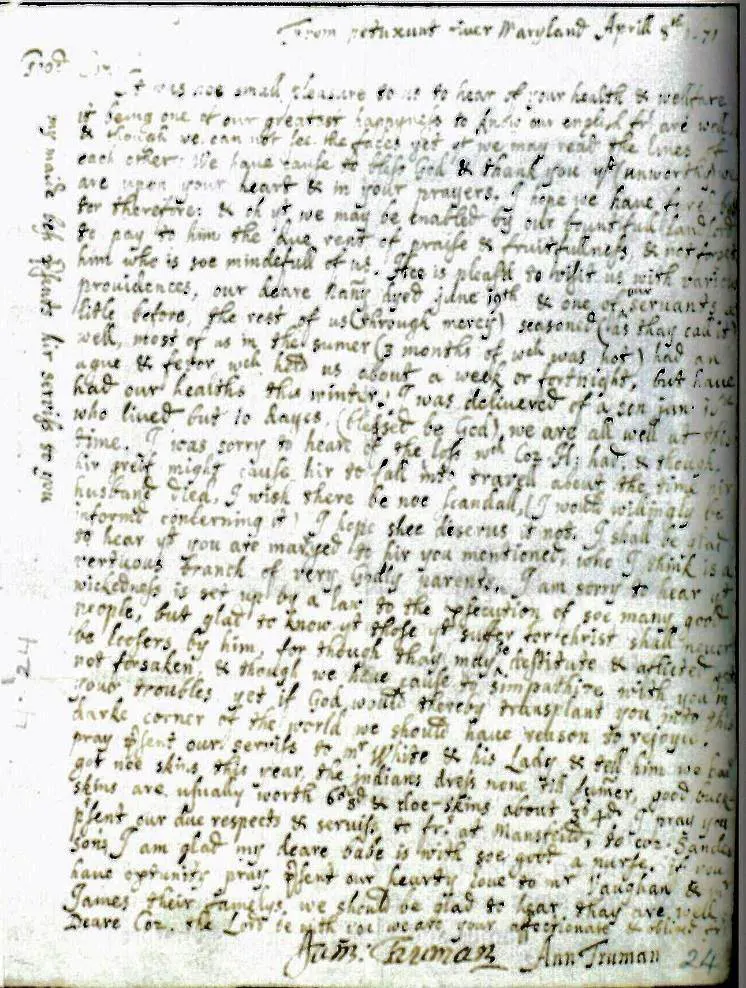 From petuxunt river Maryland Aprill 8th 71
Good Sr.
It was noe small pleasure to us to hear of your health & wellfare
it being one of our greatest happyness to know our english frs are well
& though we can not see the faces yet yt we may read the lines of
each other. We have cause to bless God & thank you yt (unworthy) we
are upon your heart & in your prayers. I hope we have
for therefore: & oh yt we may be enabled by our bountifull Landlord
to pay to him the due rent of praise & fruitfullness & not forget
him who is soe mindefull of us. Hee is pleasd to visit us with various
providences, our deare Nany dyed june 19th & one of our servants a
litle before, the rest of us (through mercy) seasoned (as thay call it)
well, most of us in the sumer (3 months of wch was hot) had an
ague & fever wch held us about a week or fortnight, but have
had our healths this winter. I was delivered of a son jan:
who lived but 10 dayes, (blessed be God) we are all well at this
time. I was sorry to hear of the loss wch Coz. H: had, & though
hir greif might cause hir to fall into travell about the time hir
husband died, I wish there be noe scandall, (I would willingly be
informd concerning it) I hope shee deserves it not. I shall be glad
to hear yt you are maryed to hir you mentioned, who I think is a
vertuous branch of very Godly parents. I am sorry to hear yt
wickedness is set up by a law to the psecution of soe many good
people, but glad to know yt those yt suffer for christ shall never
be loosers by him, for though thay may be destitute & aflicted yet
not forsaken, & though we have cause to simpathize with you in
your troubles yet if God would thereby transplant you into this
darke corner of the world we should have reason to rejoyce.
pray psent our servis to mr White & his Lady & tell him we had
got noe skins this year, the indians dress none till sumer, good buck
skins are usually worth 6s 8d & doe-skins about 3s 4d. I pray you
psent our due respects & servis to frs at Mansfeild, to coz. Sander
sons, I am glad my deare babe is with soe good a nurse, if you
have oportunity pray psent our hearty love to mr Vaughan &
James their familys, we should be glad to hear thay are well
Deare Coz. the Lord be with you we are your affectionate & oblidged
Jam: Truman Ann Truman
24
my
psents hir servis to you
4 24